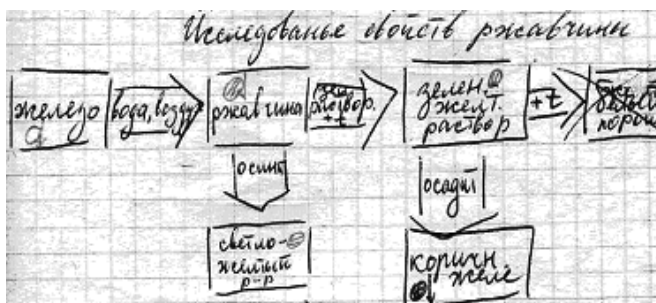 Исследованье свойств ржавчины
железо
вода, воздух
ржавчина
раствор.
+t
зелен.
желт.
раствор
+t
осин
осадит
светло-
жёлтый
р-р
коричн.
желе